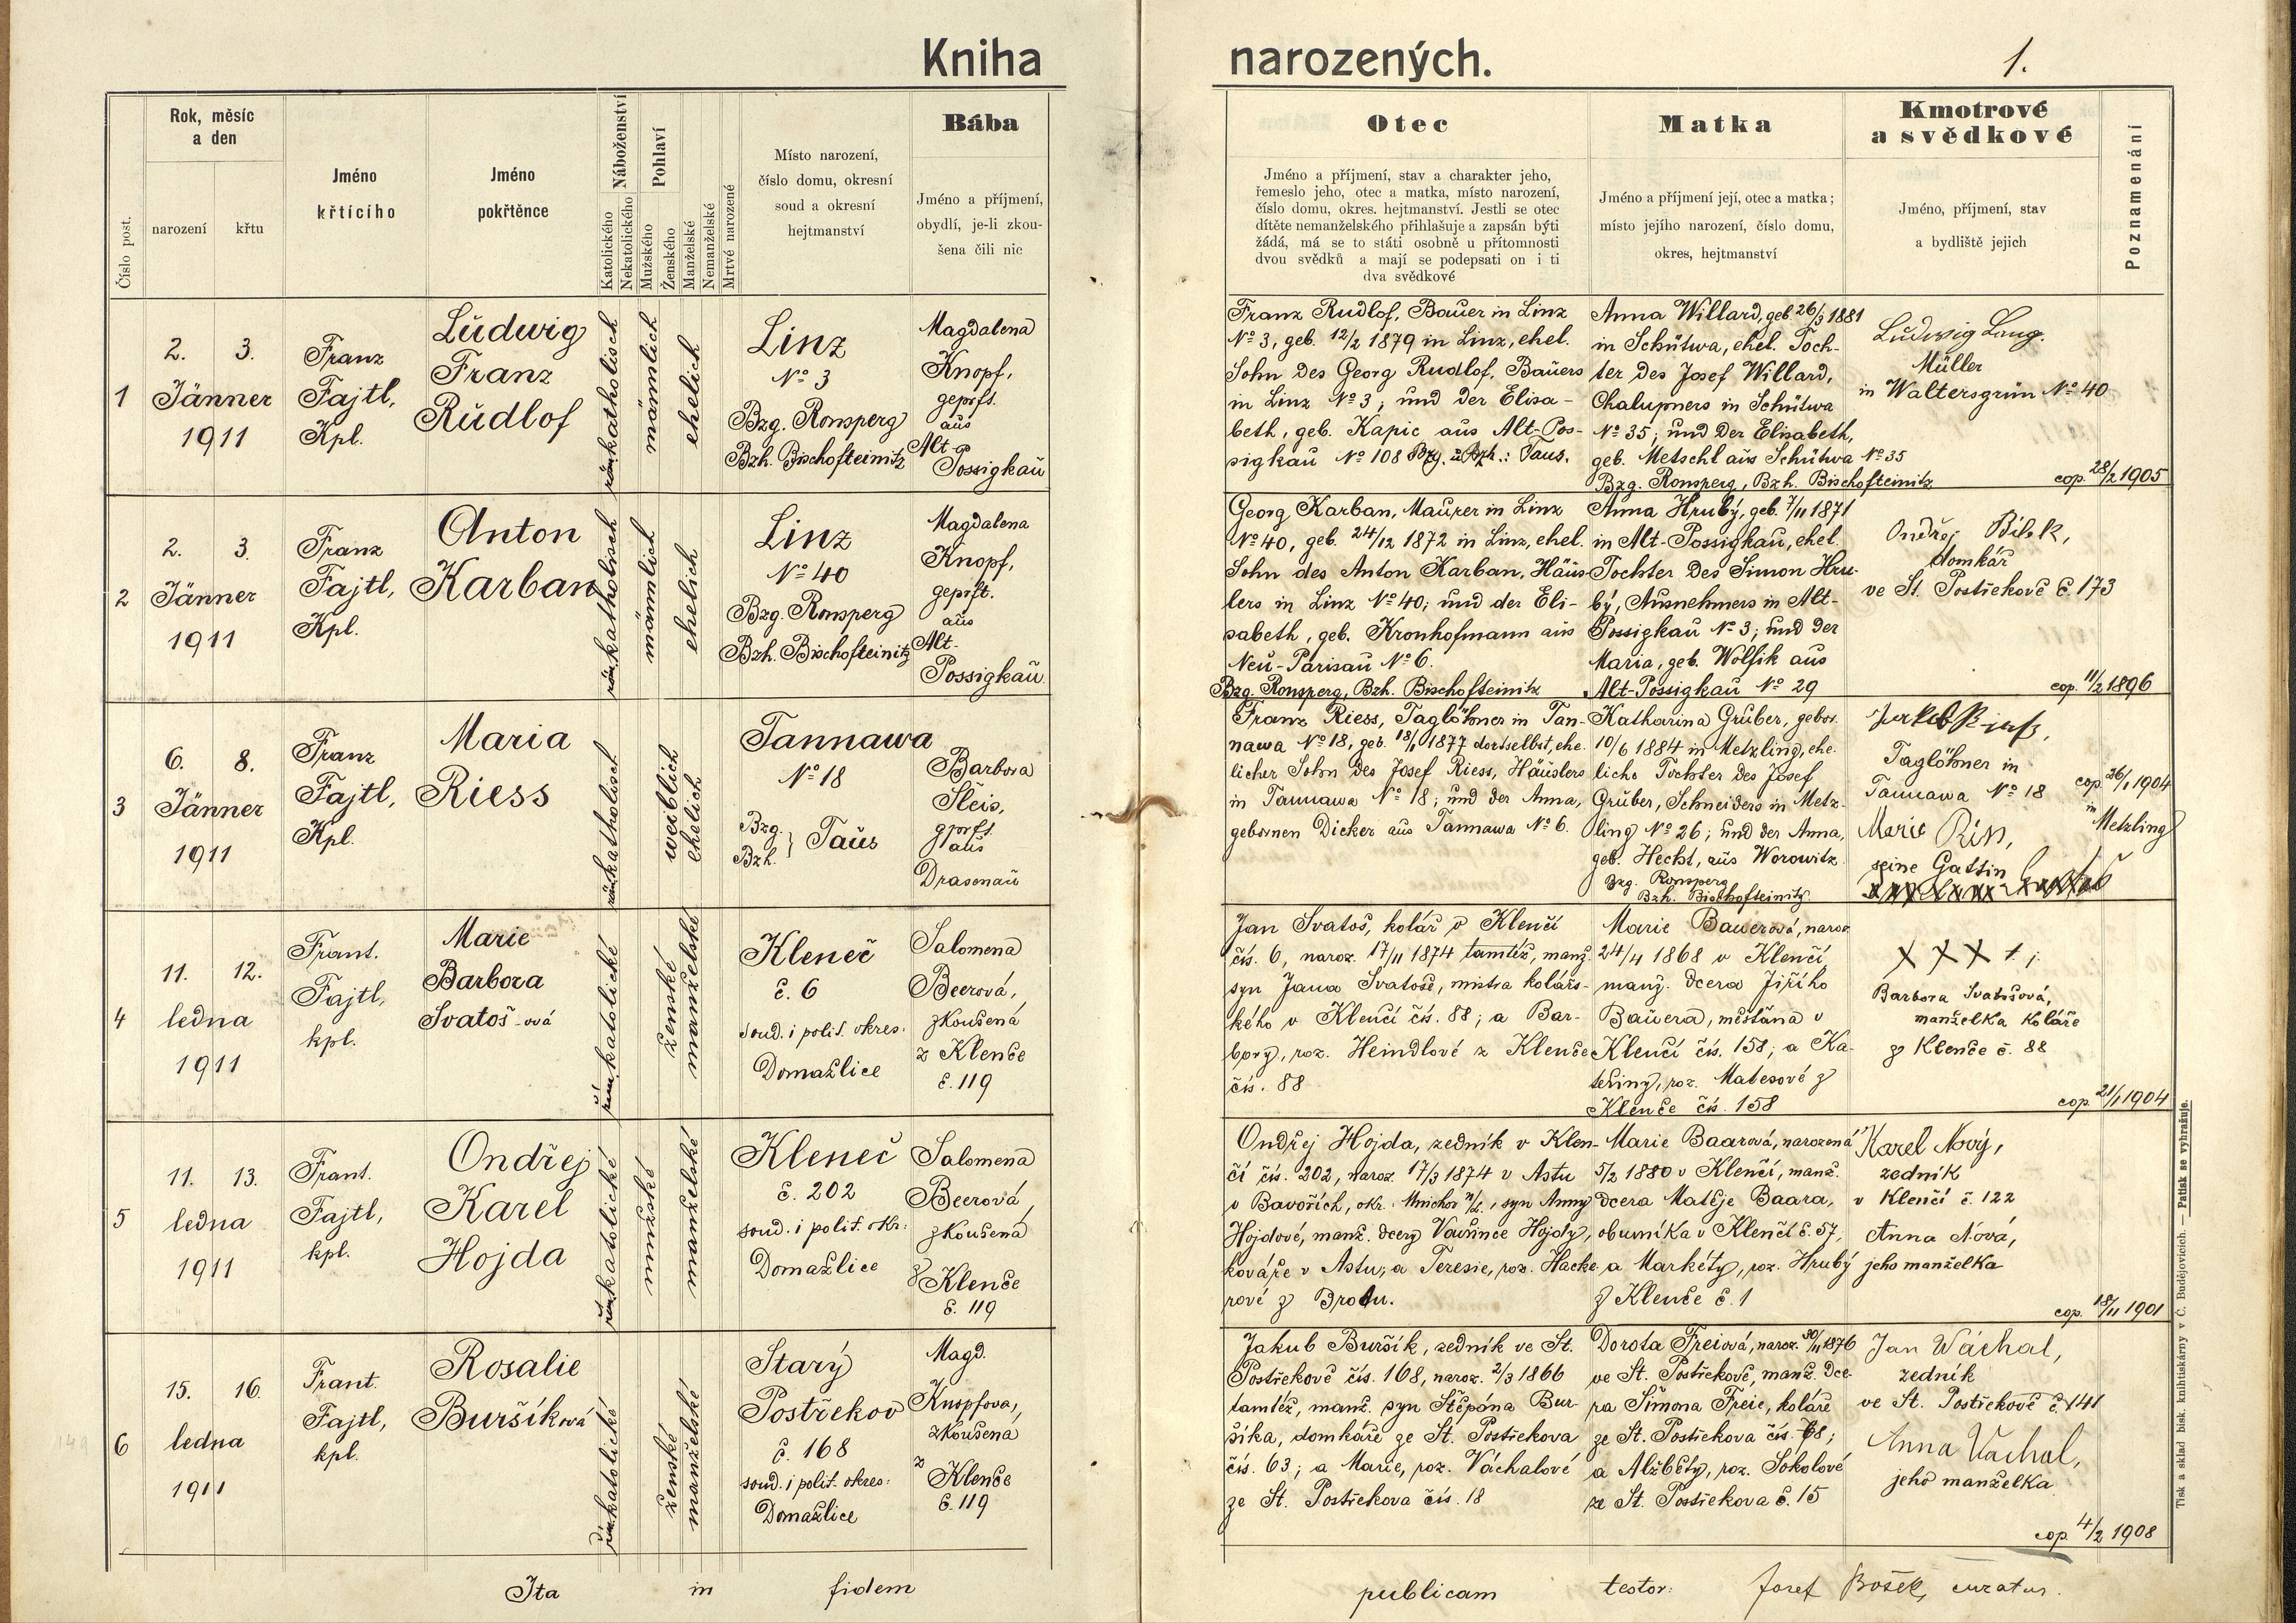 Kniha narozených.
1.
Číslo post.
Rok, měsíc
a den
narození
křtu
Jméno
křtícího
Jméno
pokřtěnce
Náboženství
Katolického
Nekatolického
Pohlaví
Mužského
Ženského
Manželské
Nemanželské
Mrtvé narozené
Místo narození,
číslo domu, okresní
soud a okresní
hejtmanství
Bába
Jméno a příjmení,
obydlí, je-li zkou-
šena čili nic
Otec
Jméno a příjmení, stav a charakter jeho,
řemeslo jeho, otec a matka, místo narození,
číslo domu, okres. hejtmanství. Jestli se otec
dítěte nemanželského přihlašuje a zapsán býti
žádá, má se to státi osobně u přítomnosti
dvou svědků a mají se podepsati on i ti
dva svědkové
Matka
Jméno a příjmení její, otec a matka;
místo jejího narození, číslo domu,
okres, hejtmanství
Kmotrové
a svědkové
Jméno, příjmení, stav
a bydliště jejich
Poznamenání
1
2. 3.
Jänner
1911
Franz
Fajtl,
Kpl.
Ludwig
Franz
Rudlof
röm. katholisch
männlich
ehelich
Linz
No 3
Bzg. Ronsperg
Bzh. Bischofteinitz
Magdalena
Knopf,
geprft.
aus
Alt-
Possigkau
Franz Rudlof, Bauer in Linz
No 3, geb. 12/2 1879 in Linz, ehel.
Sohn des Georg Rudlof, Bauers
in Linz No 3; und der Elisa-
beth, geb. Kapic aus Alt-Pos-
sigkau No 108 Bzg. u. Bzh.: Taus.
Anna Willard, geb. 26/3 1881
in Schütwa, ehel. Toch-
ter des Josef Willard,
Chalupners in Schütwa
No 35; und der Elisabeth,
geb. Metschl aus Schütwa No 35
Bzg. Ronsperg, Bzh. Bischofteinitz
Ludwig Lang.
Müller
in Waltersgrün No 40
cop. 28/2 1905
2
2. 3.
Jänner
1911
Franz
Fajtl,
Kpl.
Anton
Karban
röm. katholisch
männlich
ehelich
Linz
No 40
Bzg. Ronsperg
Bzh. Bischofteinitz
Magdalena
Knopf,
geprft.
aus
Alt-
Possigkau
Georg Karban, Maurer in Linz
No 40, geb. 24/12 1872 in Linz, ehel.
Sohn des Anton Karban, Häus-
lers in Linz No 40; und der Eli-
sabeth, geb. Kronhofmann aus
Neu-Parisau No 6.
Bzg. Ronsperg, Bzh. Bischofteinitz
Anna Hrubý, geb. 7/11 1871
in Alt-Possigkau, ehel.
Tochter des Simon Hru-
bý, Ausnehmers in Alt-
Possigkau No 3; und der
Maria, geb. Wolfik aus
Alt-Possigkau No 29
Ondřej Bílek,
domkář
ve St. Postřekově č. 173
cop. 11/2 1896
3
6. 8.
Jänner
1911
Franz
Fajtl,
Kpl.
Maria
Riess
röm. katholisch
weiblich
ehelich
Tannawa
No 18
Bzg.
Bzh. } Taus
Barbora
Sleis,
gprft.
aus
Drasenau
Franz Riess, Taglöhner in Tan-
nawa No 18, geb. 18/1 1877 dortselbst, ehe-
licher Sohn des Josef Riess, Häuslers
in Tannawa No 18; und der Anna,
gebornen Dicker aus Tannawa No 6.
Katharina Gruber, gebor.
10/6 1884 in Metzling, ehe-
liche Tochter des Josef
Gruber, Schneiders in Metz-
ling No 26; und der Anna,
geb. Hecht, aus Worowitz.
Bzg. Ronsperg
Bzh. Bischofteinitz
Taglöhner in
Tannawa No 18
seine Gattin
cop. 26/1 1904
in
Metzling
4
11. 12.
ledna
1911
Frant.
Fajtl,
kpl.
Marie
Barbora
Svatoš-ová
řím. katolické
ženské
manželské
Kleneč
č. 6
soud. i polit. okres:
Domažlice
Salomena
Beerová,
zkoušená
z Klenče
č. 119
Jan Svatoš, kolář v Klenčí
čís. 6, naroz. 17/11 1874 tamtéž, manž.
syn Jana Svatoše, mistra kolářs-
kého v Klenčí čís. 88; a Bar-
bory, roz. Heindlové z Klenče
čís. 88
Marie Bauerová, naroz.
24/4 1868 v Klenčí
manž. dcera Jiřího
Bauera, měštana v
Klenčí čís. 158; a Ka-
teřiny, roz. Matesové z
Klenče čís. 158
X X X
Barbora Svatošová,
manželka koláře
z Klenče č. 88
cop. 21/1 1904
5
11. 13.
ledna
1911
Frant.
Fajtl,
kpl.
Ondřej
Karel
Hojda
řím. katolické
mužské
manželské
Kleneč
č. 202
soud. i polit. okr:
Domažlice
Salomena
Beerová,
zkoušená
z Klenče
č. 119
Ondřej Hojda, zedník v Klen-
čí čís. 202, naroz. 17/3 1874 v Astu
v Bavořích, okr. Mnichov n/L., syn Anny
Hojdové, manž. dcery Vavřince Hojdy,
kováře v Astu; a Teresie, roz. Hacke-
rové z Brodu.
Marie Baarová, narozená
5/2 1880 v Klenčí, manž.
dcera Matěje Baara,
obuvníka v Klenčí č. 57,
a Markéty, roz. Hrubý
z Klenče č. 1
Karel Nový,
zedník
v Klenčí č. 122
Anna Nová,
jeho manželka
cop. 18/11 1901
6
15. 16.
ledna
1911
Frant.
Fajtl,
kpl.
Rosalie
Buršíková
řím. katolické
ženské
manželské
Starý
Postřekov
č. 168
soud. i polit. okres:
Domažlice
Magd.
Knopfova,
zkoušená
z Klenče
č. 119
Jakub Buršík, zedník ve St.
Postřekově čís. 168, naroz. 2/3 1866
tamtéž, manž. syn Štěpána Bur-
šíka, domkáře ze St. Postřekova
čís. 63; a Marie, roz. Váchalové
ze St. Postřekova čís. 18
Dorota Freiová, naroz. 30/11 1876
ve St. Postřekově, manž. dce-
ra Šimona Freie, koláře
ze St. Postřekova čís. 68;
a Alžběty, roz. Sokolové
ze St. Postřekova č. 15
Jan Váchal,
zedník
ve St. Postřekově č. 141
Anna Vachal,
jeho manželka
cop. 4/2 1908
Ita in fidem publicam testor: Josef Bošek, curatus.
Tisk a sklad bisk. knihtiskárny v Č. Budějovicích. — Patisk se vyhražuje.